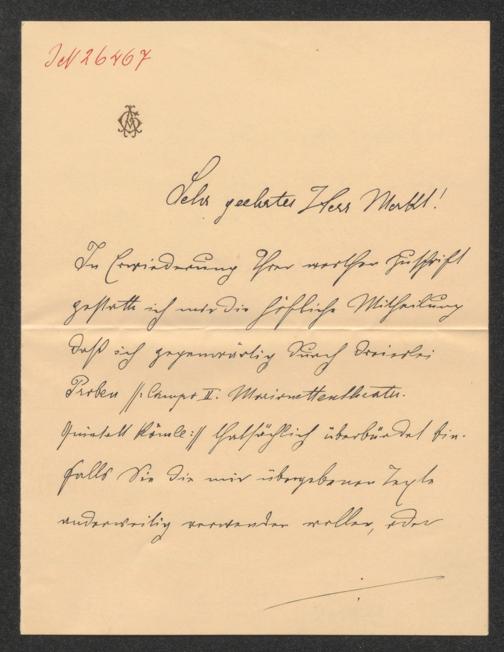 JN 26467
Sehr geehrter Herr Merkl!
In Erwiederung Ihrer werthen Zuschrift
gestatte ich mir die höfliche Mittheilung
daß ich gegenwärtig durch dreierlei
Proben //: Campo II. Marionettentheater.
Quintett Kömle :// thatsächlich überbürdet bin.
Falls Sie die mir übergebenen Texte
anderweitig verwenden wollen, oder